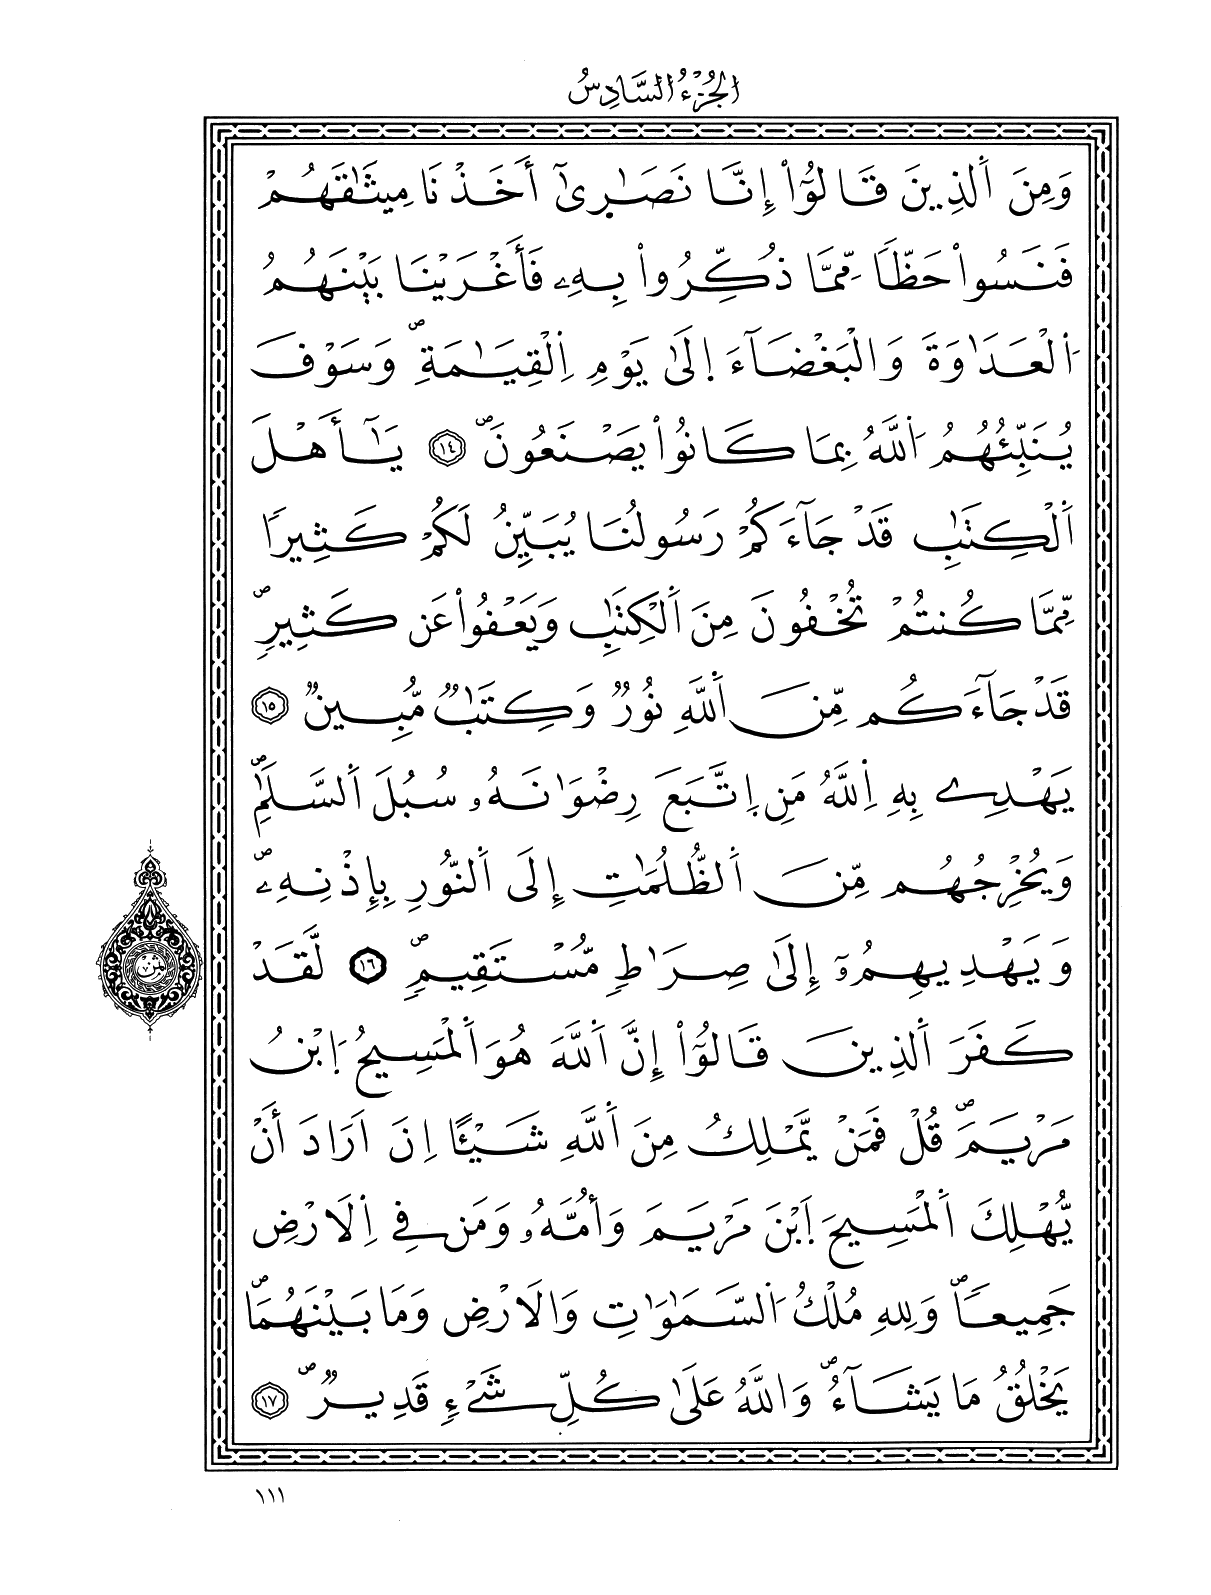 الجُزْءُ السَّادِسُ
وَمِنَ اَ۬لذِينَ قَالُوٓاْ إِنَّا نَصَٰر۪ىٰٓ أَخَذْنَا مِيثَٰقَهُمْ
فَنَسُواْ حَظّاٗ مِّمَّا ذُكِّرُواْ بِهِۦ فَأَغْرَيْنَا بَيْنَهُمُ
اُ۬لْعَدَٰوَةَ وَالْبَغْضَآءَ ا۪لَىٰ يَوْمِ اِ۬لْقِيَٰمَةِۖ وَسَوْفَ
يُنَبِّئُهُمُ اُ۬للَّهُ بِمَا كَانُواْ يَصْنَعُونَۖ ١٤ يَٰٓأَهْلَ
اَ۬لْكِتَٰبِ قَدْ جَآءَكُمْ رَسُولُنَا يُبَيِّنُ لَكُمْ كَثِيراٗ
مِّمَّا كُنتُمْ تُخْفُونَ مِنَ اَ۬لْكِتَٰبِ وَيَعْفُواْ عَن كَثِيرٖۖ
قَدْ جَآءَكُم مِّنَ اَ۬للَّهِ نُورٞ وَكِتَٰبٞ مُّبِينٞ ١٥
يَهْدِے بِهِ اِ۬للَّهُ مَنِ اِ۪تَّبَعَ رِضْوَٰنَهُۥ سُبُلَ اَ۬لسَّلَٰمِۖ
وَيُخْرِجُهُم مِّنَ اَ۬لظُّلُمَٰتِ إِلَى اَ۬لنُّورِ بِإِذْنِهِۦۖ
وَيَهْدِيهِمُۥٓ إِلَىٰ صِرَٰطٖ مُّسْتَقِيمٖۖ ١٦ لَّقَدْ
كَفَرَ اَ۬لذِينَ قَالُوٓاْ إِنَّ اَ۬للَّهَ هُوَ اَ۬لْمَسِيحُ اُ۪بْنُ
مَرْيَمَۖ قُلْ فَمَنْ يَّمْلِكُ مِنَ اَ۬للَّهِ شَيْـًٔا اِنَ اَرَادَ أَنْ
يُّهْلِكَ اَ۬لْمَسِيحَ اَ۪بْنَ مَرْيَمَ وَأُمَّهُۥ وَمَن فِے اِ۬لَارْضِ
جَمِيعاٗۖ وَلِلهِ مُلْكُ اُ۬لسَّمَٰوَٰتِ وَالَارْضِ وَمَا بَيْنَهُمَاۖ
يَخْلُقُ مَا يَشَآءُۖ وَاللَّهُ عَلَىٰ كُلِّ شَےْءٖ قَدِيرٞۖ ١٧
١١١